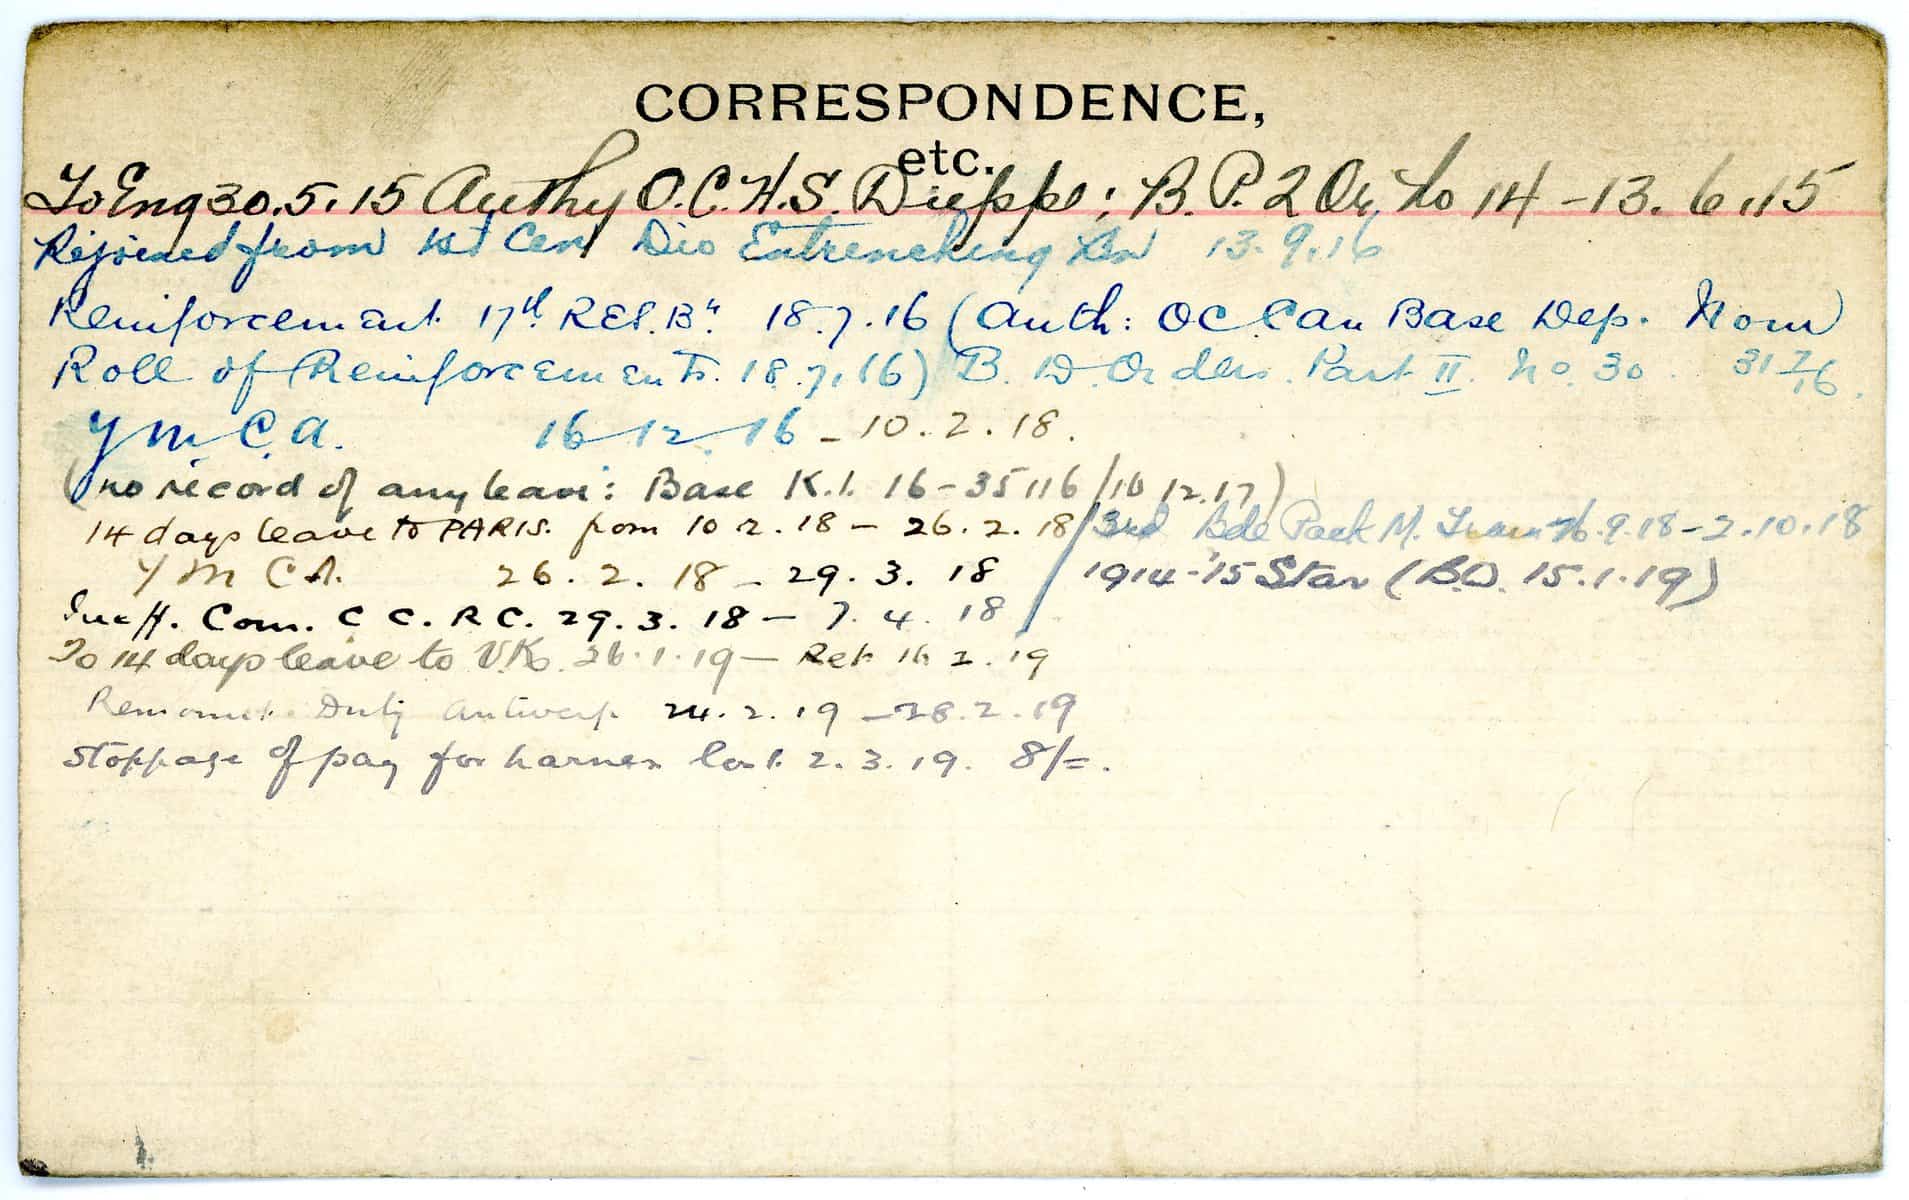 CORRESPONDENCE,
etc.
To Eng 30.5.15 Authy O.C.H.S. Dieppe; B.P.2 Or. No 14 - 13.6.15
Rejoined from 1st Can Div Entrenching Bn 13.9.16
Reinforcement 17th RES. Bn. 18.7.16 (Auth: OC Can Base Dep. Nom
Roll of Reinforcements. 18.7.16) B.D. Orders. Part II. No. 30. 31 7/16.
Y M. C. A. 16-12-16 - 10.2.18.
(no record of any leave: Base K.1. 16-35116/10 12.17)
14 days leave to PARIS. from 10 2.18 - 26.2.18/ 3rd Bde Pack M. Train 26.9.18-2.10.18
Y M C A. 26.2.18 - 29.3.18 / 1914-'15 Star (B.D. 15.1.19)
Com. C C. R C. 29.3.18 - 7.4.18 /
To 14 days leave to U.K. 26.1.19 - Ret 16 2.19
Remount Duty Antwerp 24.2.19 - 28.2.19
Stoppage of pay for harness lost. 2.3.19. 8/=.